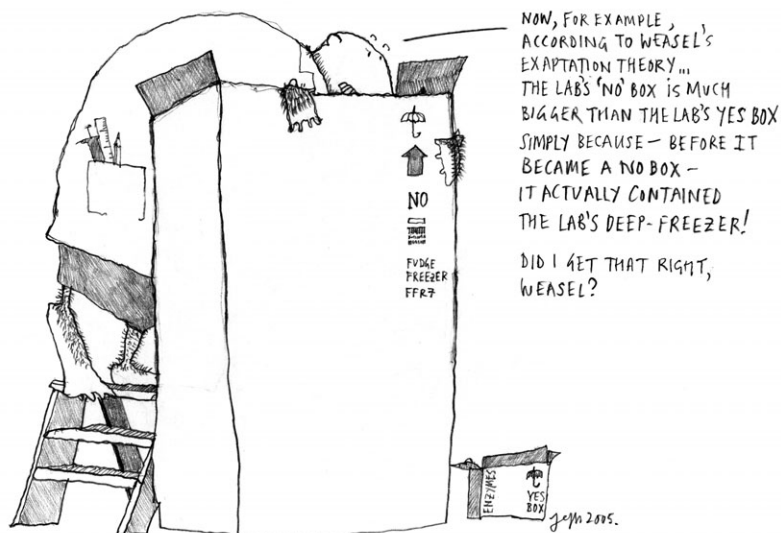 NOW, FOR EXAMPLE,
ACCORDING TO WEASEL'S
EXAPTATION THEORY...
THE LAB'S 'NO' BOX IS MUCH
BIGGER THAN THE LAB'S YES BOX
SIMPLY BECAUSE – BEFORE IT
BECAME A NO BOX –
IT ACTUALLY CONTAINED
THE LAB'S DEEP-FREEZER!
DID I GET THAT RIGHT,
WEASEL?
NO
FUDGE
FREEZER
FFR7
ENZYMES
YES
BOX
2005.